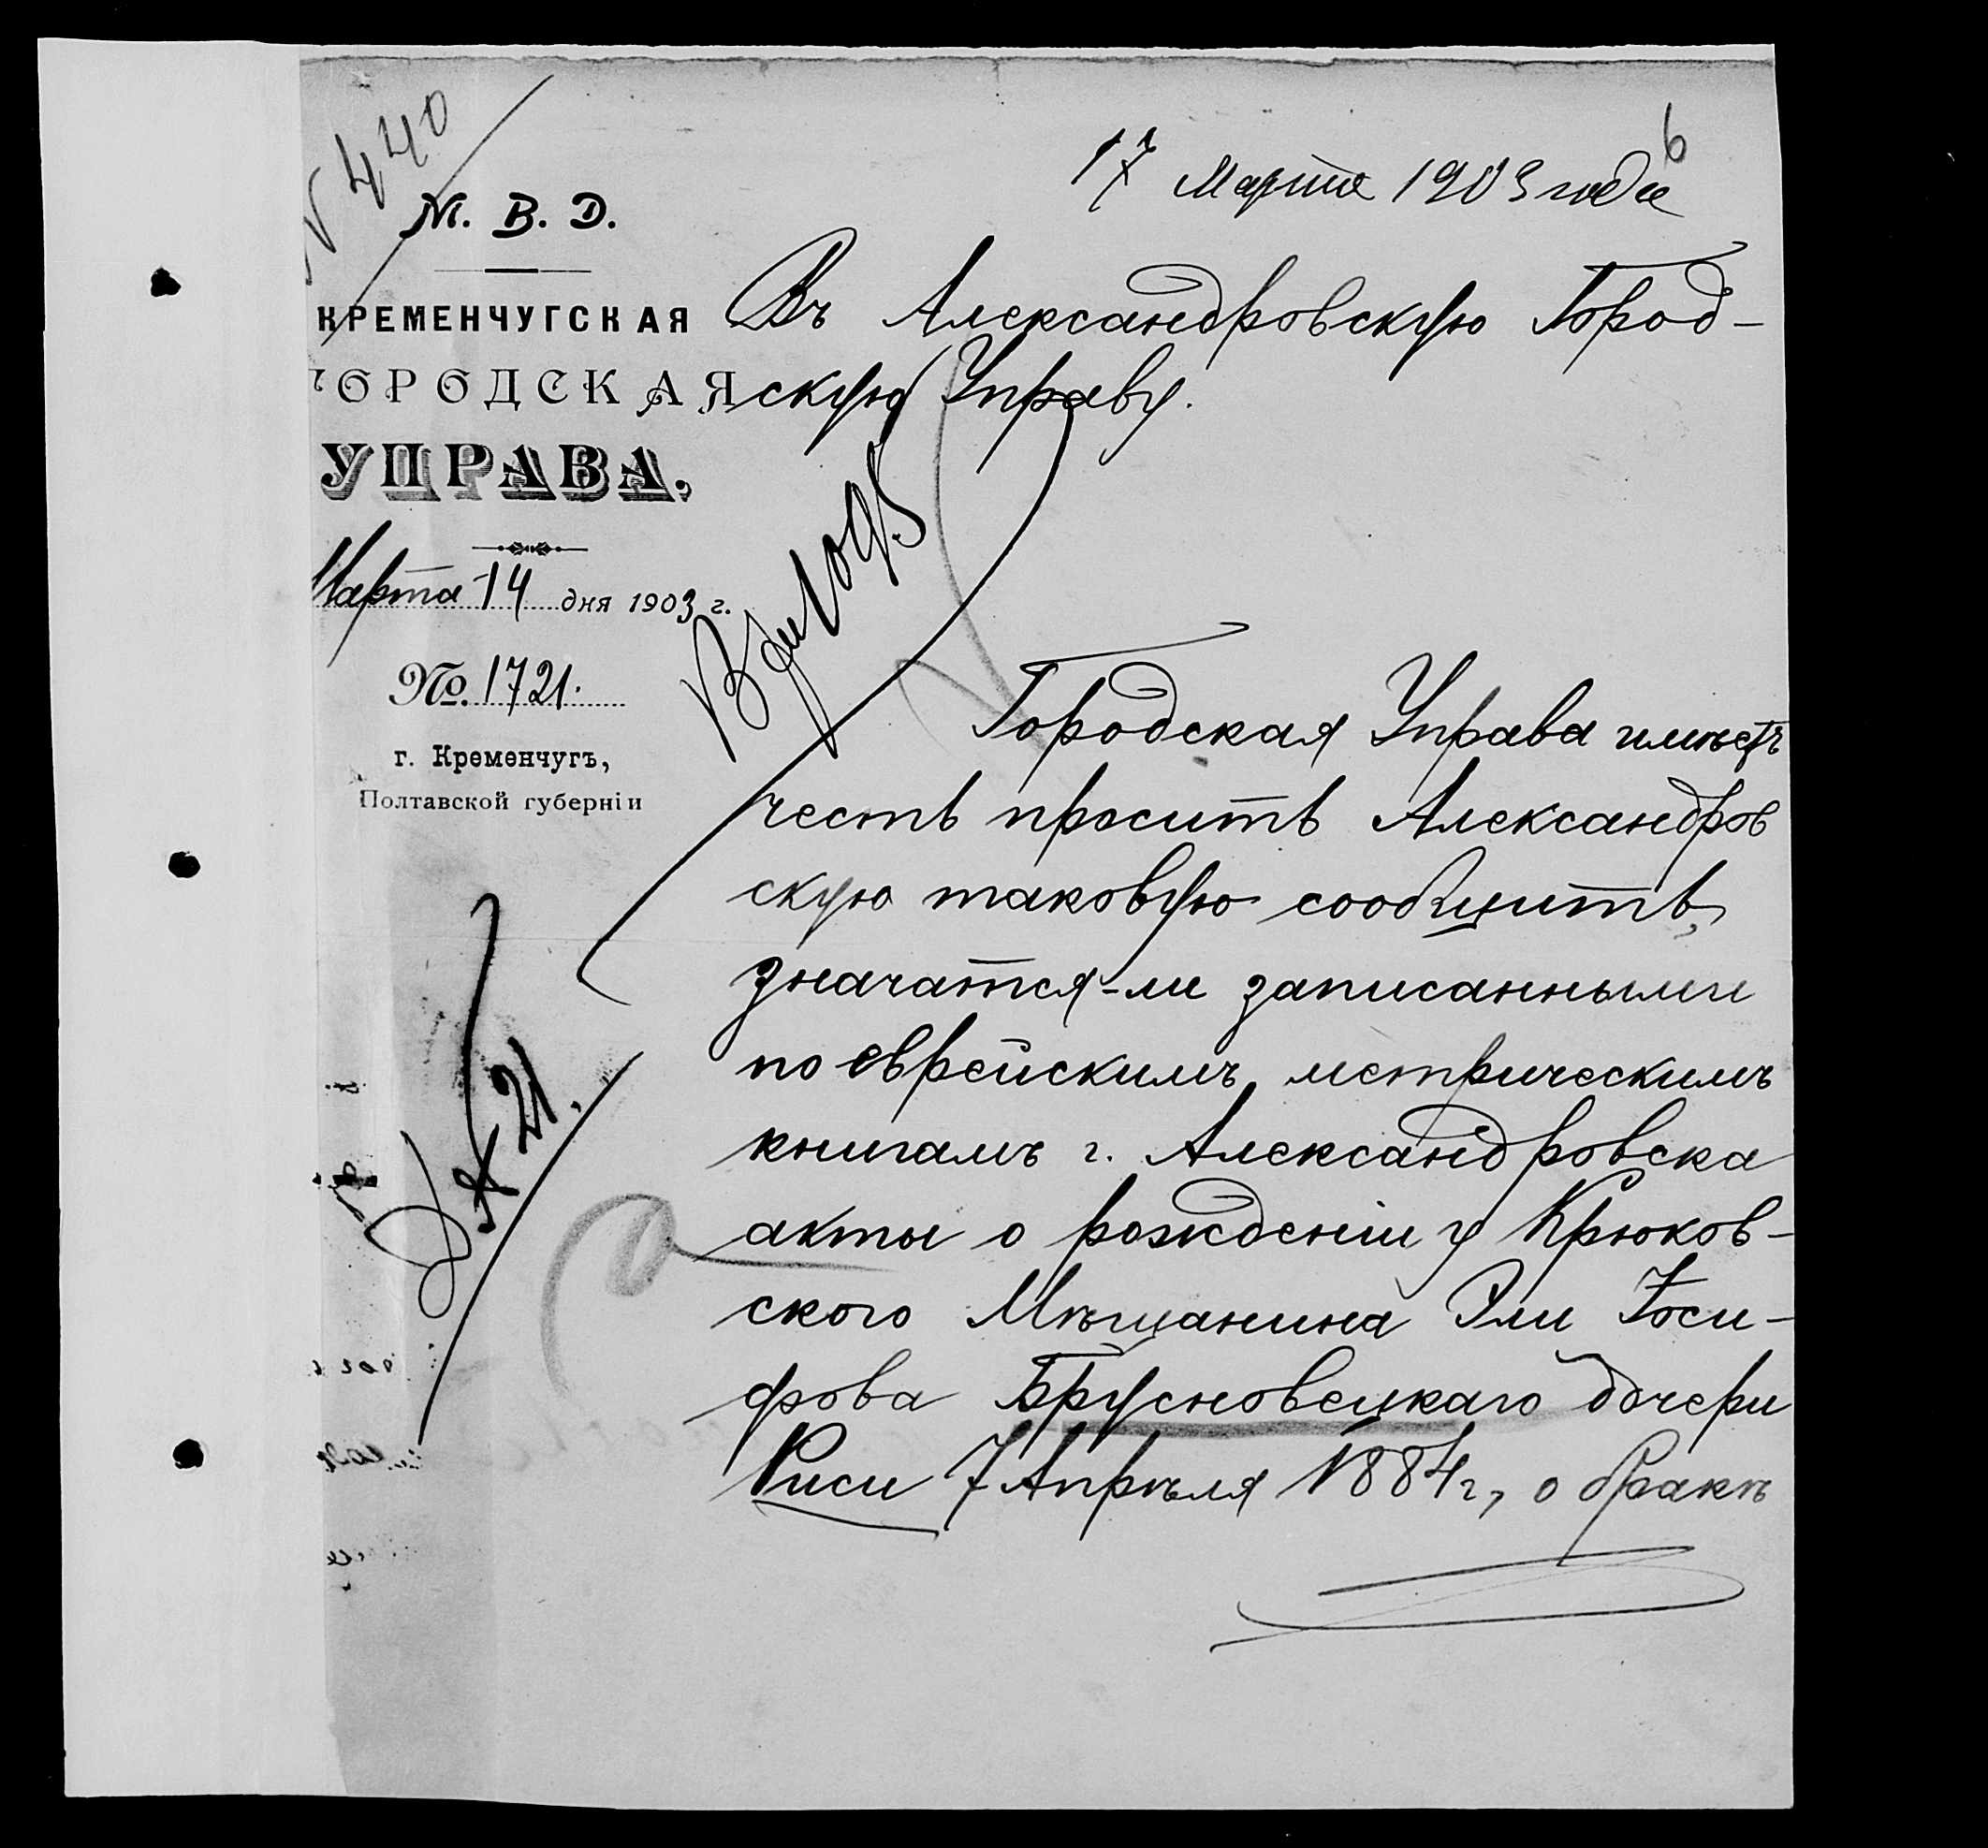 № 440
6
17 Марта 1903 года
М. В. Д.
КРЕМЕНЧУГСКАЯ
ГОРОДСКАЯ
УПРАВА,
Марта 14 дня 1903 г.
№ 1721.
г. Кременчугъ,
Полтавской губерніи
Въ Александровскую Город-
скую Управу.
Городская Управа имѣетъ
честь просить Александров
скую таковую сообщить,
значатся-ли записанными
по еврейскимъ метрическимъ
книгамъ г. Александровска
акты о рожденіи у Крюков-
ского Мѣщанина Эли Іоси-
фова Брусновецкаго дочери
Риси 7 Апрѣля 1884 г, о бракѣ
21.